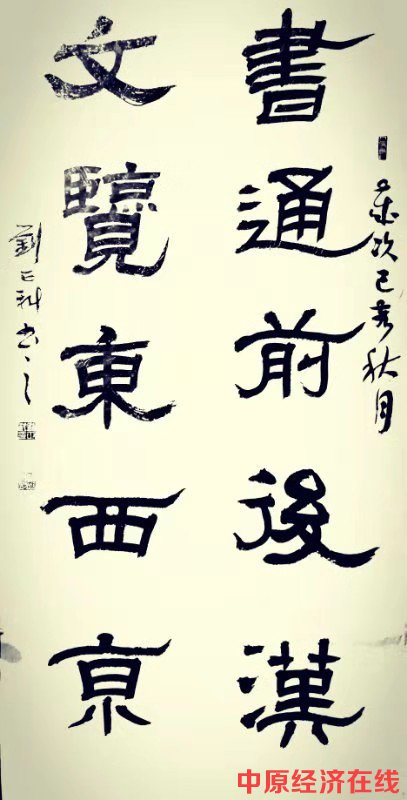 歲次己亥秋月
書通前後漢
文覽東西京
劉正科书之
中原经济在线